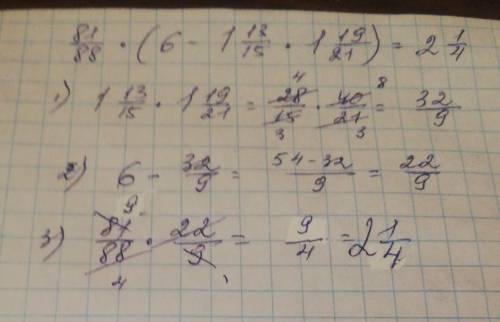 81/88 · (6 - 1 13/15 · 1 19/21) = 2 1/4
1) 1 13/15 · 1 19/21 = 28/15 · 40/21 = 32/9
4 8 3 3
2) 6 - 32/9 = 54-32/9 = 22/9
3) 81/88 · 22/9 = 9/4 = 2 1/4
9 4 1